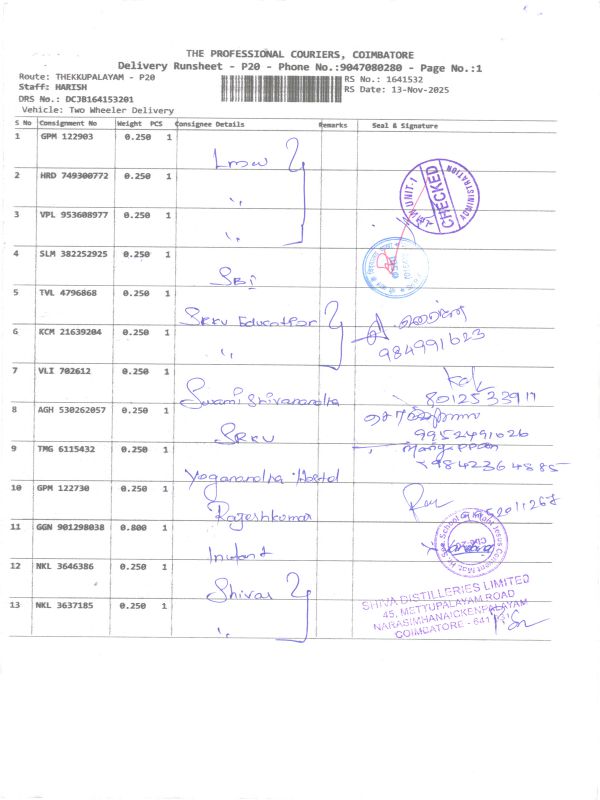 THE PROFESSIONAL COURIERS, COIMBATORE
Delivery Runsheet - P20 - Phone No.:9047080280 - Page No.:1
Route: THEKKUPALAYAM - P20
RS No.: 1641532
Staff: HARISH
RS Date: 13-Nov-2025
DRS No.: DCJB164153201
Vehicle: Two Wheeler Delivery
S No Consignment No Weight PCS Consignee Details Remarks Seal & Signature
1 GPM 122903 0.250 1 Lmw
2 HRD 749300772 0.250 1 "
UNIT-1 CHECKED ADMINISTRATION
3 VPL 953608977 0.250 1 "
4 SLM 382252925 0.250 1 SBI
5 TVL 4796868 0.250 1 SRKV Education
6 KCM 21639204 0.250 1 "
984991623
7 VLI 702612 0.250 1 Swami Shivanandha
8012533911
8 AGH 530262057 0.250 1 SRKV
9952491026
9 TMG 6115432 0.250 1 Yoganandha Hostel
9842364885
10 GPM 122730 0.250 1 Rajeshkumar
11 GGN 901298038 0.800 1 Infant
12 NKL 3646386 0.250 1 Shivas
13 NKL 3637185 0.250 1 "
SHIVA DISTILLERIES LIMITED
45, METTUPALAYAM ROAD
NARASIMHANAICKENPALAYAM
COIMBATORE - 641